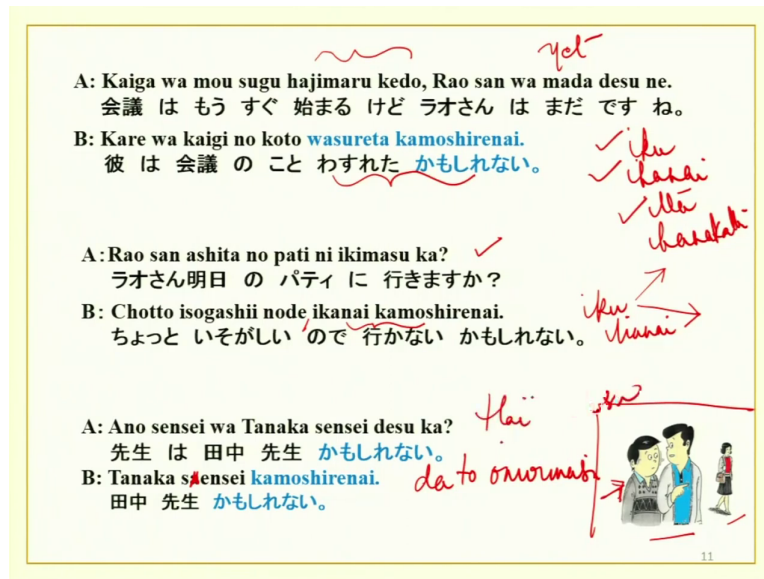 yet
A: Kaiga wa mou sugu hajimaru kedo, Rao san wa mada desu ne.
会議 は もう すぐ 始まる けど ラオさん は まだ です ね。
B: Kare wa kaigi no koto wasureta kamoshirenai.
彼 は 会議 の こと わすれた かもしれない。
iku
ikanai
A: Rao san ashita no pati ni ikimasu ka?
ラオさん明日 の パティ に 行きますか?
B: Chotto isogashii node ikanai kamoshirenai.
ちょっと いそがしい ので 行かない かもしれない。
iku
A: Ano sensei wa Tanaka sensei desu ka?
Hai
先生 は 田中 先生 かもしれない。
B: Tanaka sensei kamoshirenai.
da to omoimasu
田中 先生 かもしれない。
11